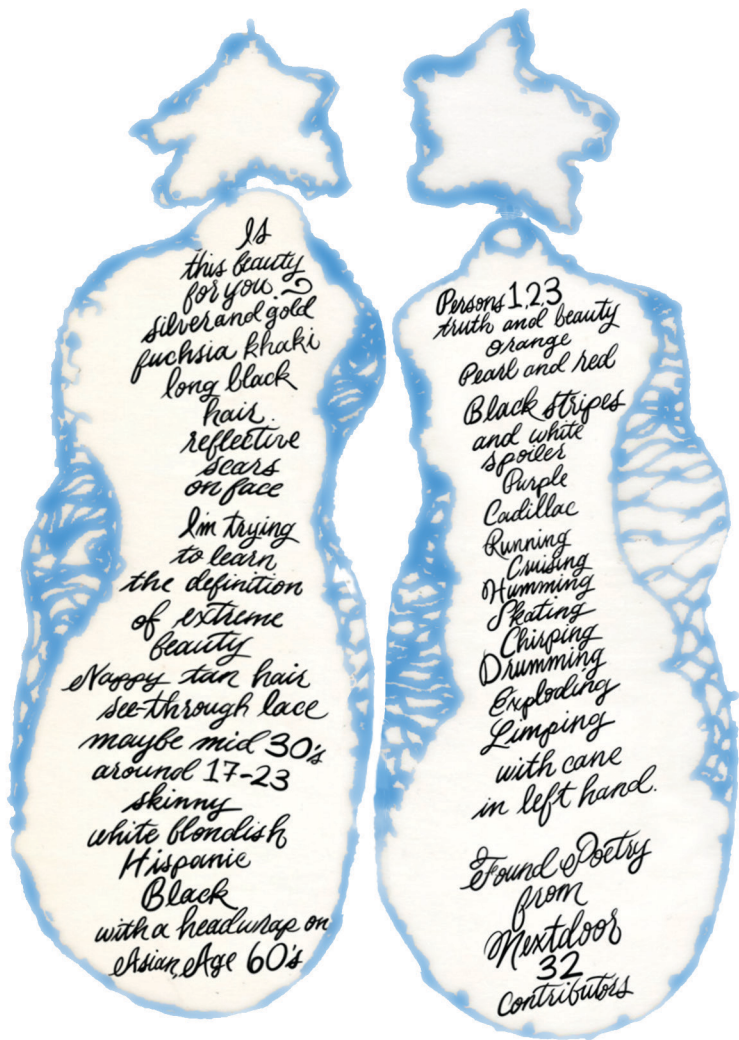 Is
this beauty
for you?
silver and gold
fuchsia khaki
long black
hair.
reflective
scars
on face
I'm trying
to learn
the definition
of extreme
beauty
Nappy tan hair
see-through lace
maybe mid 30's
around 17-23
skinny
white blondish
Hispanic
Black
with a headwrap on
Asian, Age 60's
Persons 1,2,3
truth and beauty
orange
Pearl and red
Black stripes
and white
spoiler
Purple
Cadillac
Running
Cruising
Humming
Skating
Chirping
Drumming
Exploding
Limping
with cane
in left hand.
Found Poetry
from
Nextdoor
32
contributors